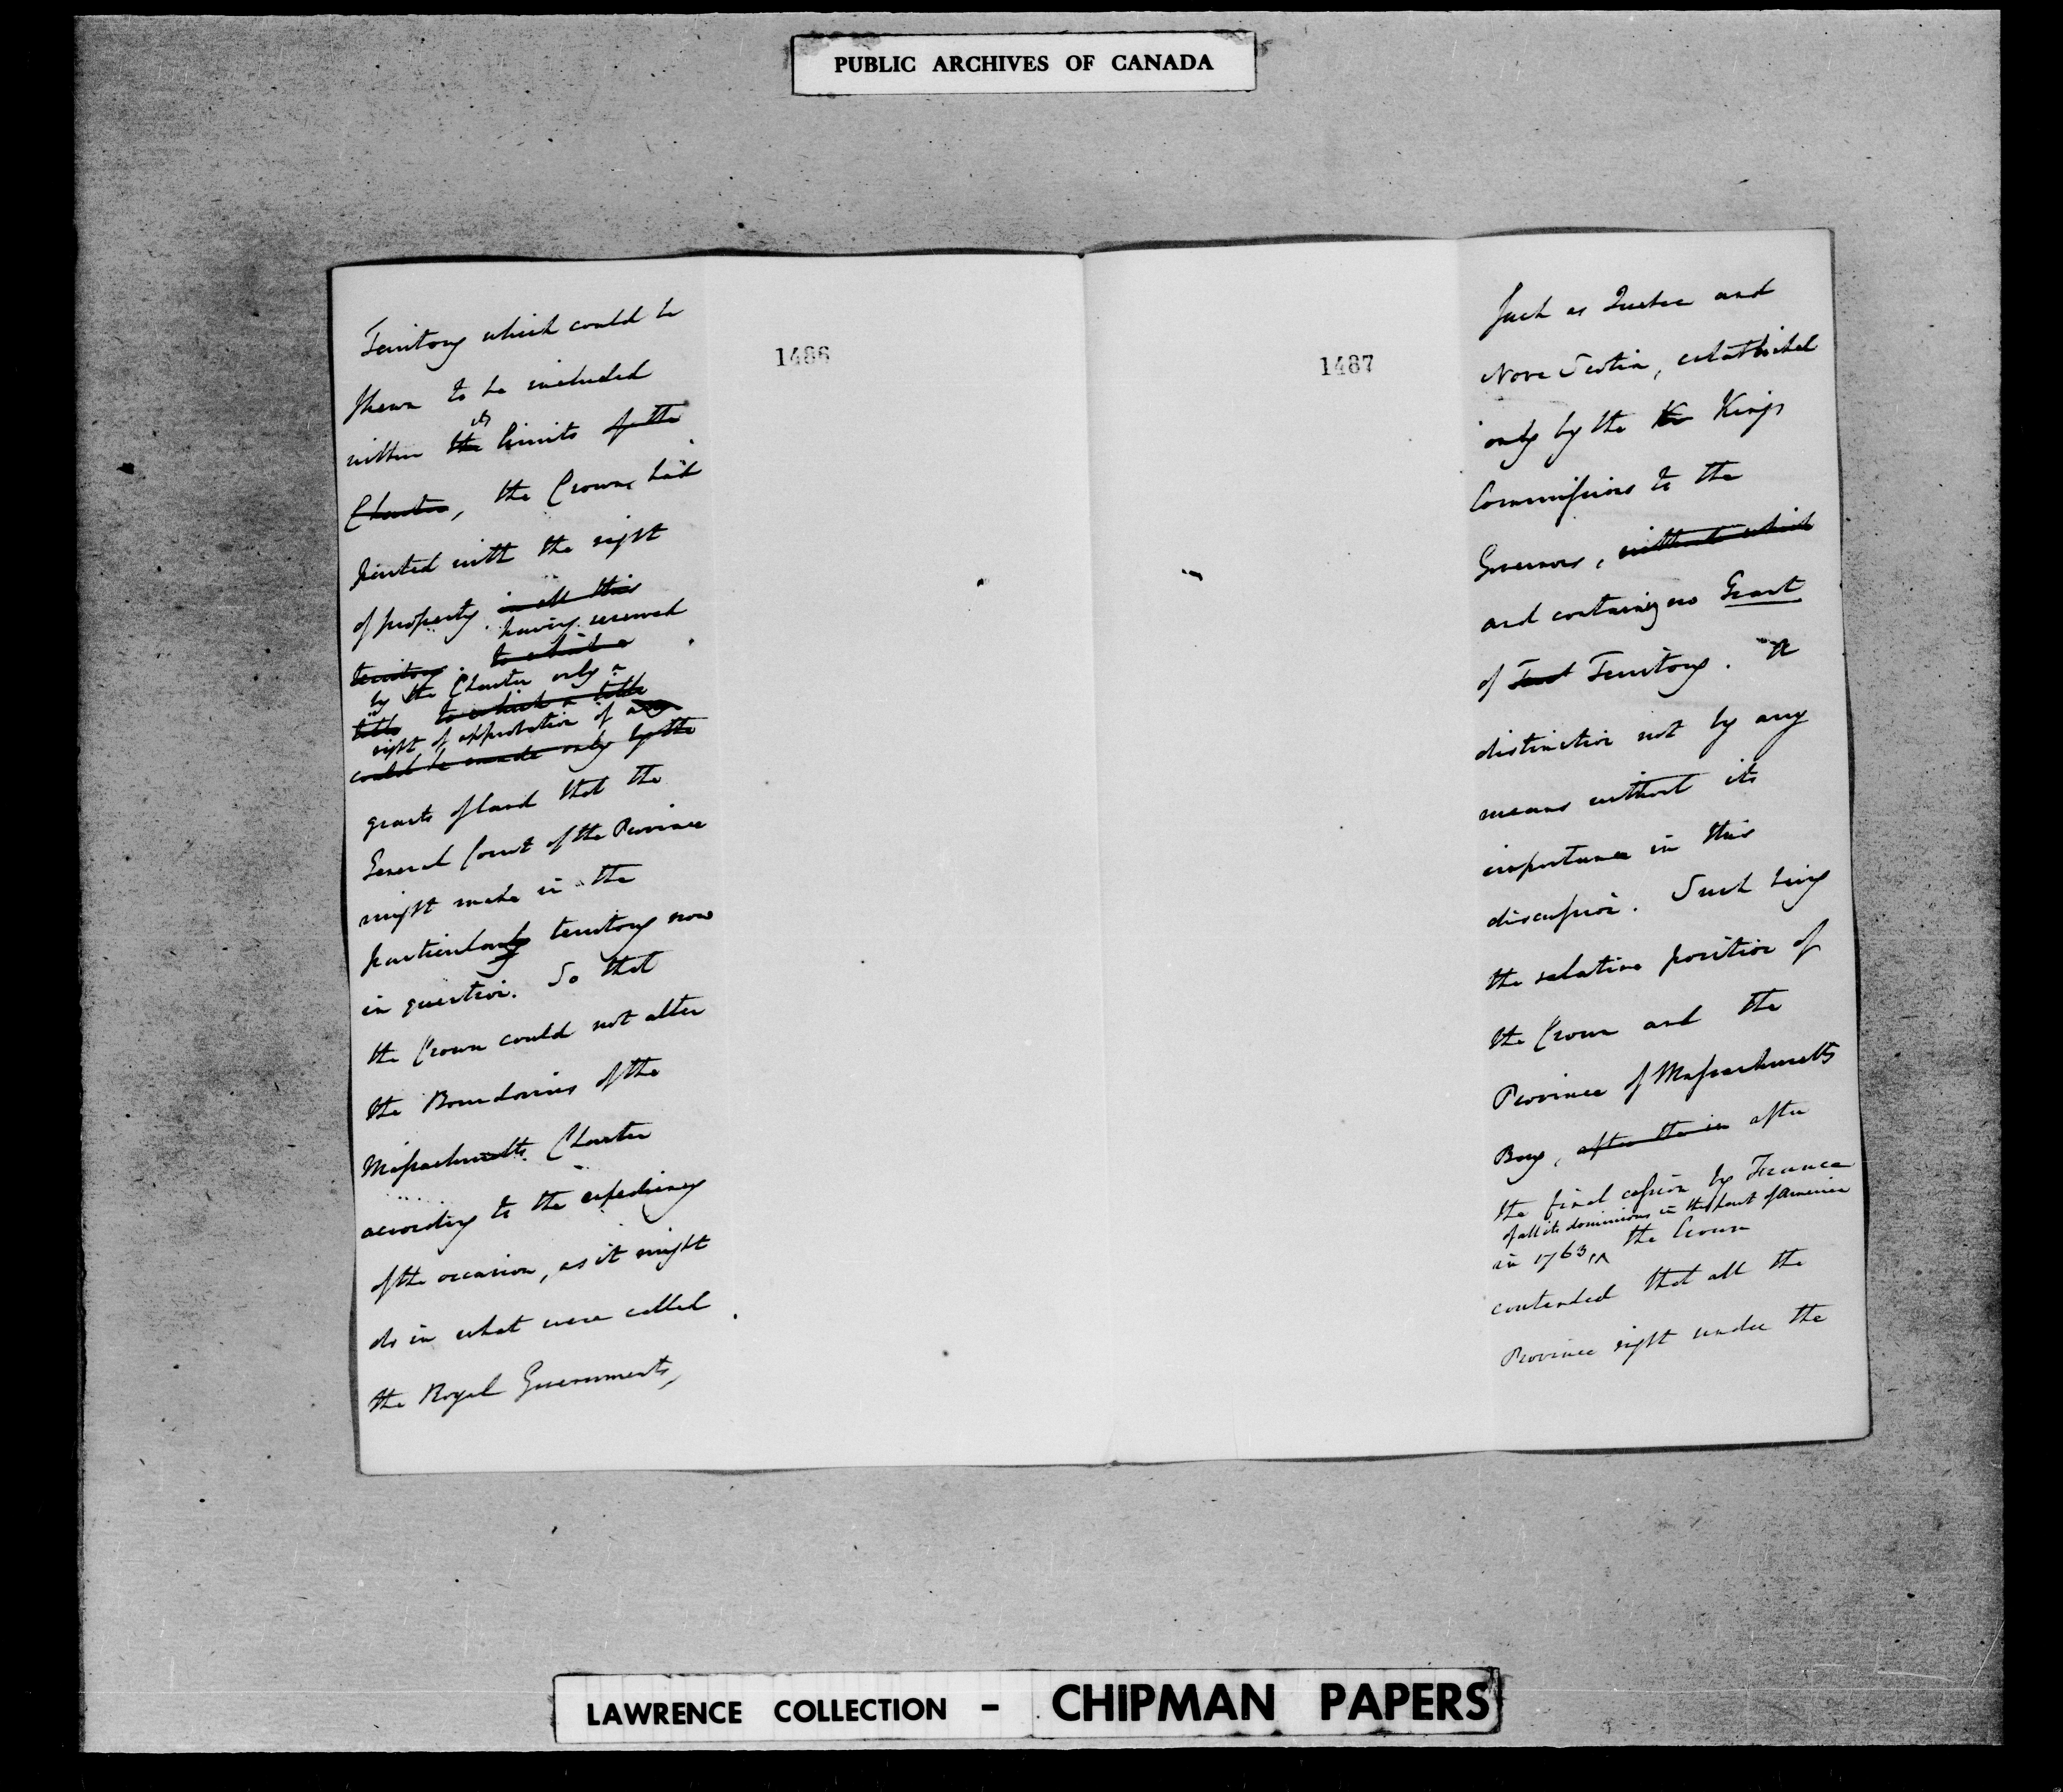 PUBLIC ARCHIVES OF CANADA
1486
Territory which could be
shewn to be included
its
within the limits of the
Charter, the Crown had
parted with the right
of property in all this
having reserved
territory. to which a
by the Charter only a
title to which a title
right of approbation of any
could be made only by the
grants of land that the
General Court of the Province
might make in the
particularly territory now
in question. So that
the Crown could not alter
the Boundaries of the
Massachusetts Charter
according to the expediency
of the occasion, as it might
do in what were called
the Royal Governments,
1487
Such as Quebec and
Nova Scotia, established
only by the K Kings
Commissions to the
Governors, without which
and containing no Grant
of Territory. A
distinction not by any
means without its
importance in this
discussion. Such being
the relative position of
the Crown and the
Province of Massachusetts
Bay, after the in after
the final cession by France
of all its dominions in this part of America
in 1763, the Crown
contended that all the
Province right under the
LAWRENCE COLLECTION - CHIPMAN PAPERS